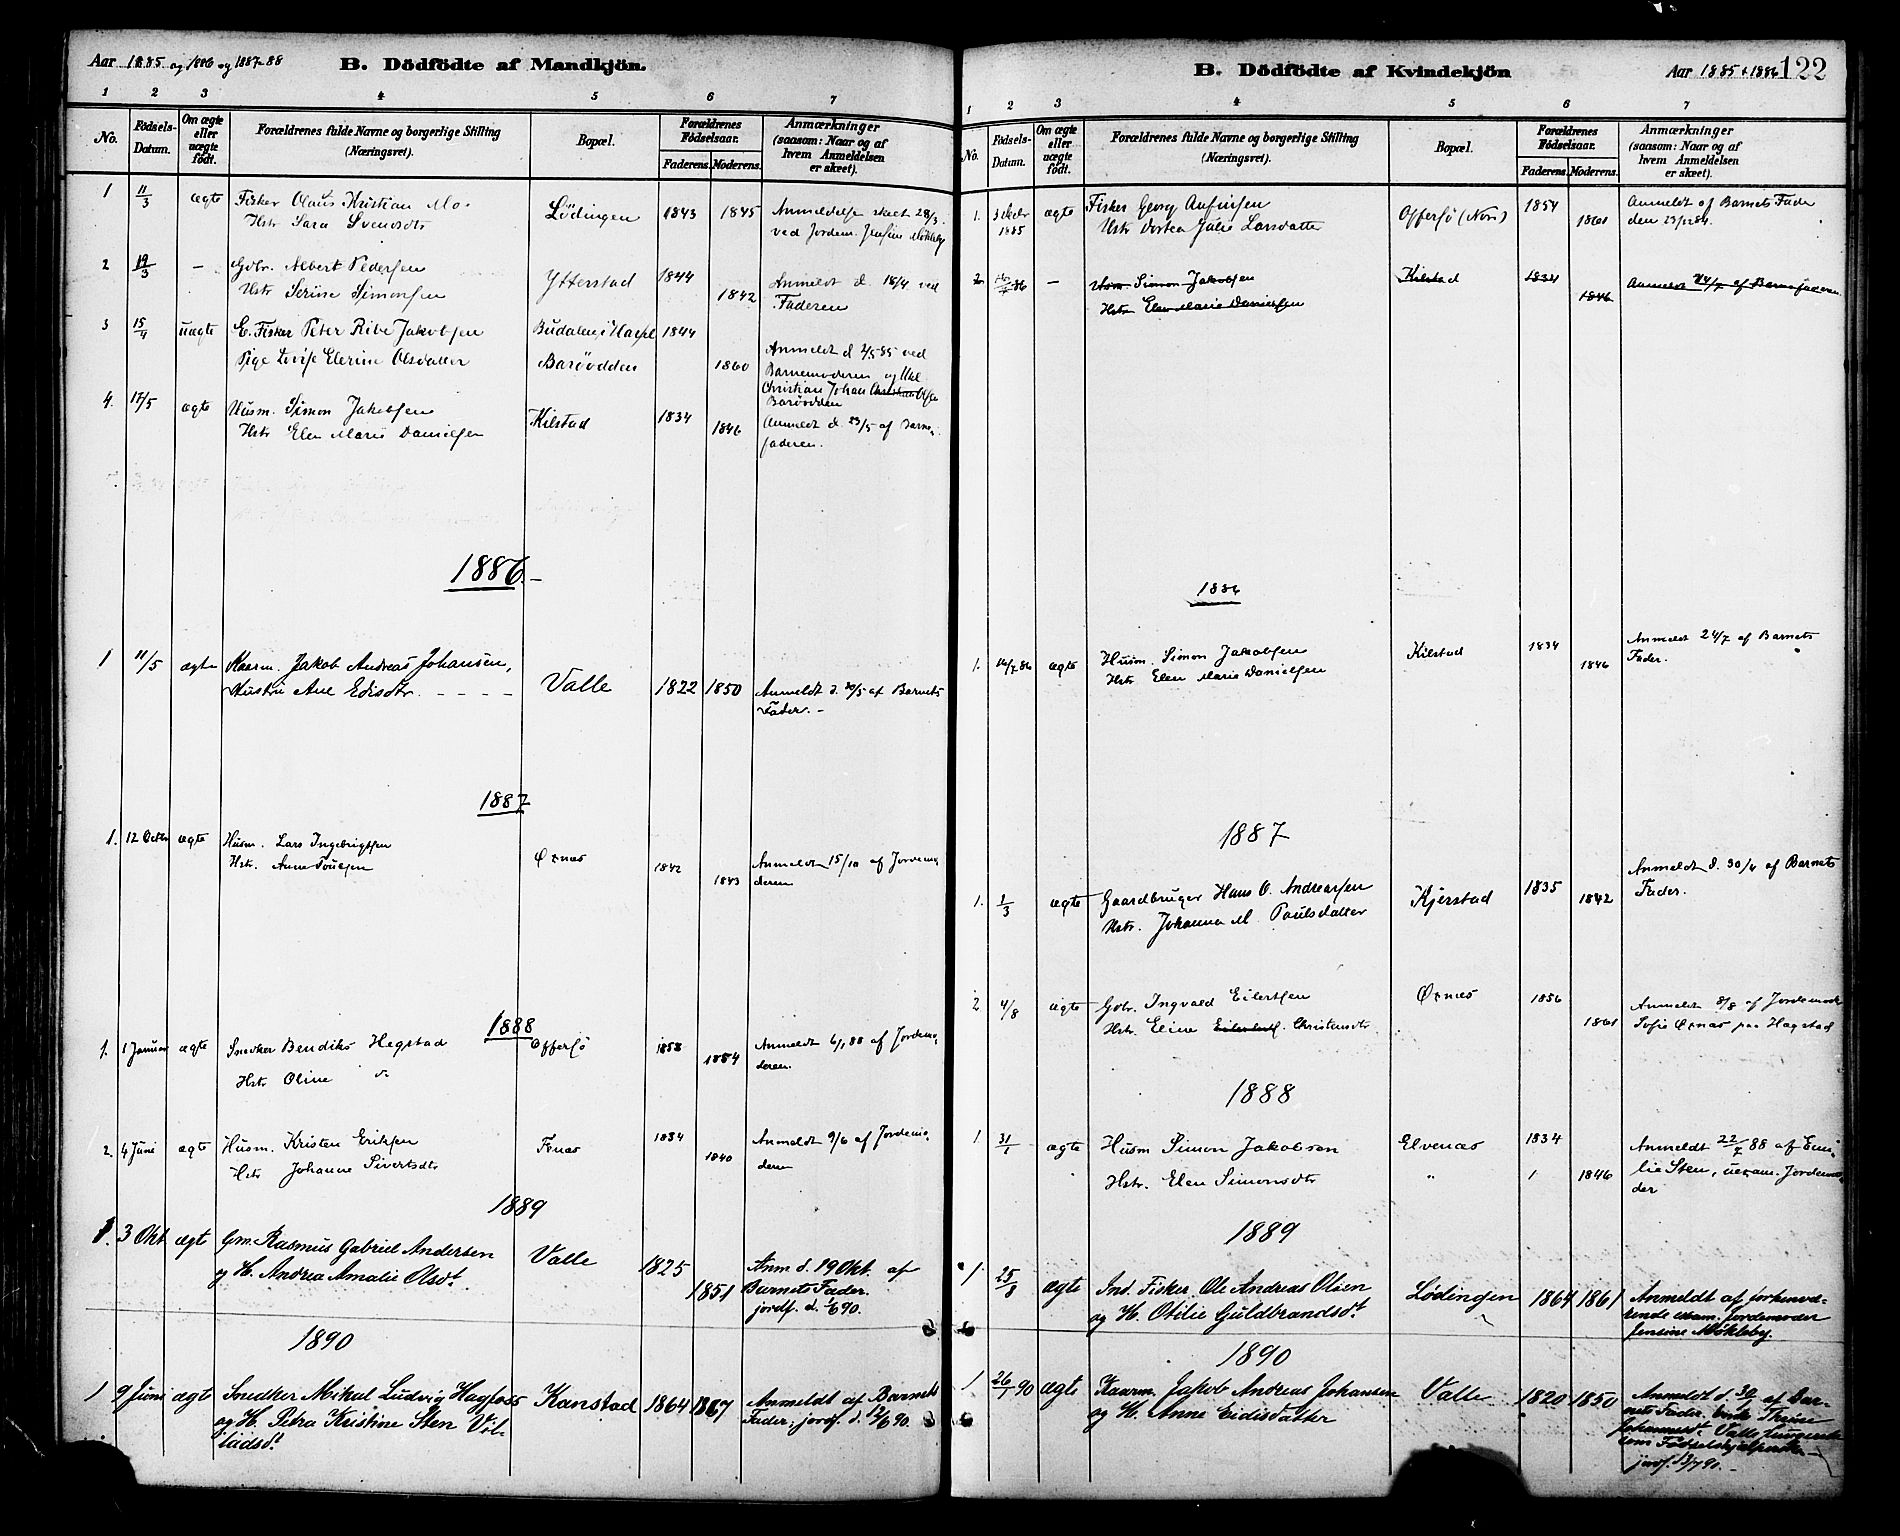 Aar 1885 og 1886 og 1887-88
B. Dödfödte af Mandkjön.
1 2 3 4 5 6 7
No.
Födsels-Datum.
Om ægte eller uægte födt.
Forældrenes fulde Navne og borgerlige Stilling (Næringsvei).
Bopæl.
Forældrenes Födselsaar.
Faderens. Moderens.
Anmærkninger (saasom: Naar og af hvem Anmeldelsen er skeet).
1 11/3 ægte Fisker Olaus Kristian Mo Lödingen 1843 1845 Anmeldelse skeet 28/3
Hstr Sara Svendsdtr ved Jordem. Jensine Mökleby
2 19/3 — Gbr. Albert Pedersen Ytterstad 1844 Anmeldt d. 18/4 ved
Hstr Serine Simonsen 1842 Faderen
3 15/4 uægte E. Fisker Peter Ribe Jakobsen Budalen i 1844
Pige Lovise Elerine Olsdatter Barøodden 1860 Anmeldt d 2/5 85 ved
Barnemoderen og Ukl.
Christian Johan Christian Olsen
Barøodden
4. 17/5 ægte Husm. Simon Jakobsen Kilstad 1834 Anmeldt d. 23/5 af Barne-
Hstr Elen Marie Danielsen 1846 faderen.
1886.-
1 11/5 ægte Kaarm. Jakob Andreas Johansen,
Hustru Ane Edisdtr. - - - - Valle 1822 1850 Anmeldt d. 20/5 af Barnets
Fader. -
1887
1. 12 Octbr ægte Husm. Lars Ingebrigtsen Øxnes 1842 Anmeldt 15/10 af Jordemo
Hstr. Anne 1843 deren
1888
1. 1 Januar ægte Snedker Bendiks Hegstad Offersö 1858 Anmeldt 6/1 88 af Jordemo-
Hstr Oline do 1854 deren.
2. 4 Juni ægte Husm. Kristen Eriksen 1834 Anmeldt 9/6 af Jordemo-
Hstr Johanne Sivertsdtr 1840 deren
1889
1. 3 Okt ægt Gm. Rasmus Gabriel Andersen Valle 1825 Anm d. 19 Okt. af
og H. Andrea Amalie Olsdt. 1851 Barnets Fader.
jordf. d. 1/6 90.
1890
1 9 Juni ægt Snedker Mikal Ludvig Hagfoss Kanstad 1864 1867 Anmeldt af Barnets
og H. Petra Kristine Sten Vol- Fader; jordf. d. 12/6 90.
ladsdt
B. Dödfödte af Kvindekjön
Aar 1885 & 1886 122
1 2 3 4 5 6 7
No.
Födsels-Datum.
Om ægte eller uægte födt.
Forældrenes fulde Navne og borgerlige Stilling (Næringsvei).
Bopæl.
Forældrenes Födselsaar.
Faderens. Moderens.
Anmærkninger (saasom: Naar og af hvem Anmeldelsen er skeet).
1. 3 Decbr 1885 ægte Fisker Georg Anfinsen Offersö (Nor:) 1854 Anmeldt af Barnets Fader
Hstr Dortea Julie Larsdatter 1861 den 23/12 84.
2. 16/7 86 — Husm. Simon Jakobsen Kilstad 1834 Anmeldt 24/7 af Barnefaderen.
Hstr Elen Marie Danielsen 1846
1886
1. 16/7 86 ægte Husm. Simon Jakobsen Kilstad 1834 Anmeldt 24/7 af Barnets
Hstr Elen Marie Danielsen 1846 Fader.
1887
1. 1/3 ægte Gaardbruger Hans O. Andreassen Kjerstad 1835 Anmeldt d. 30/4 af Barnets
Hstr. Johanna M. Paulsdatter 1842 Fader.
2 4/8 ægte Gbr. Ingvald Eilertsen Øxnes 1856 Anmeldt 8/8 af Jordemodr
Hstr. Eline Christensdtr. 1861 Sofie Øxnæs paa Hegstad
1888
1. 31/1 ægte Husm Simon Jakobsen Elvenæs 1834 Anmeldt 22/7 88 af Emi-
Hstr. Elen Simonsdtr " 1846 lie Sten, uexam. Jordemo-
der
1889
1. 25/8 ægte Ind. Fisker Ole Andreas Olsen Lødingen 1864 1861 Anmeldt af forhenvæ-
og H. Otilie Guldbrandsdt. rende exam. Jordemoder
Jensine Møkleby.
1890
1 26/1 90 ægte Kaarm. Jakob Andreas Johansen Valle 1820 1850 Anmeldt d. af Bar-
og H. Anne Eidisdatter nets Fader. Enke Thrine
Johannesdt. Valle fungerede
som Fødselshjælperske
jordf. 13/7 90. -